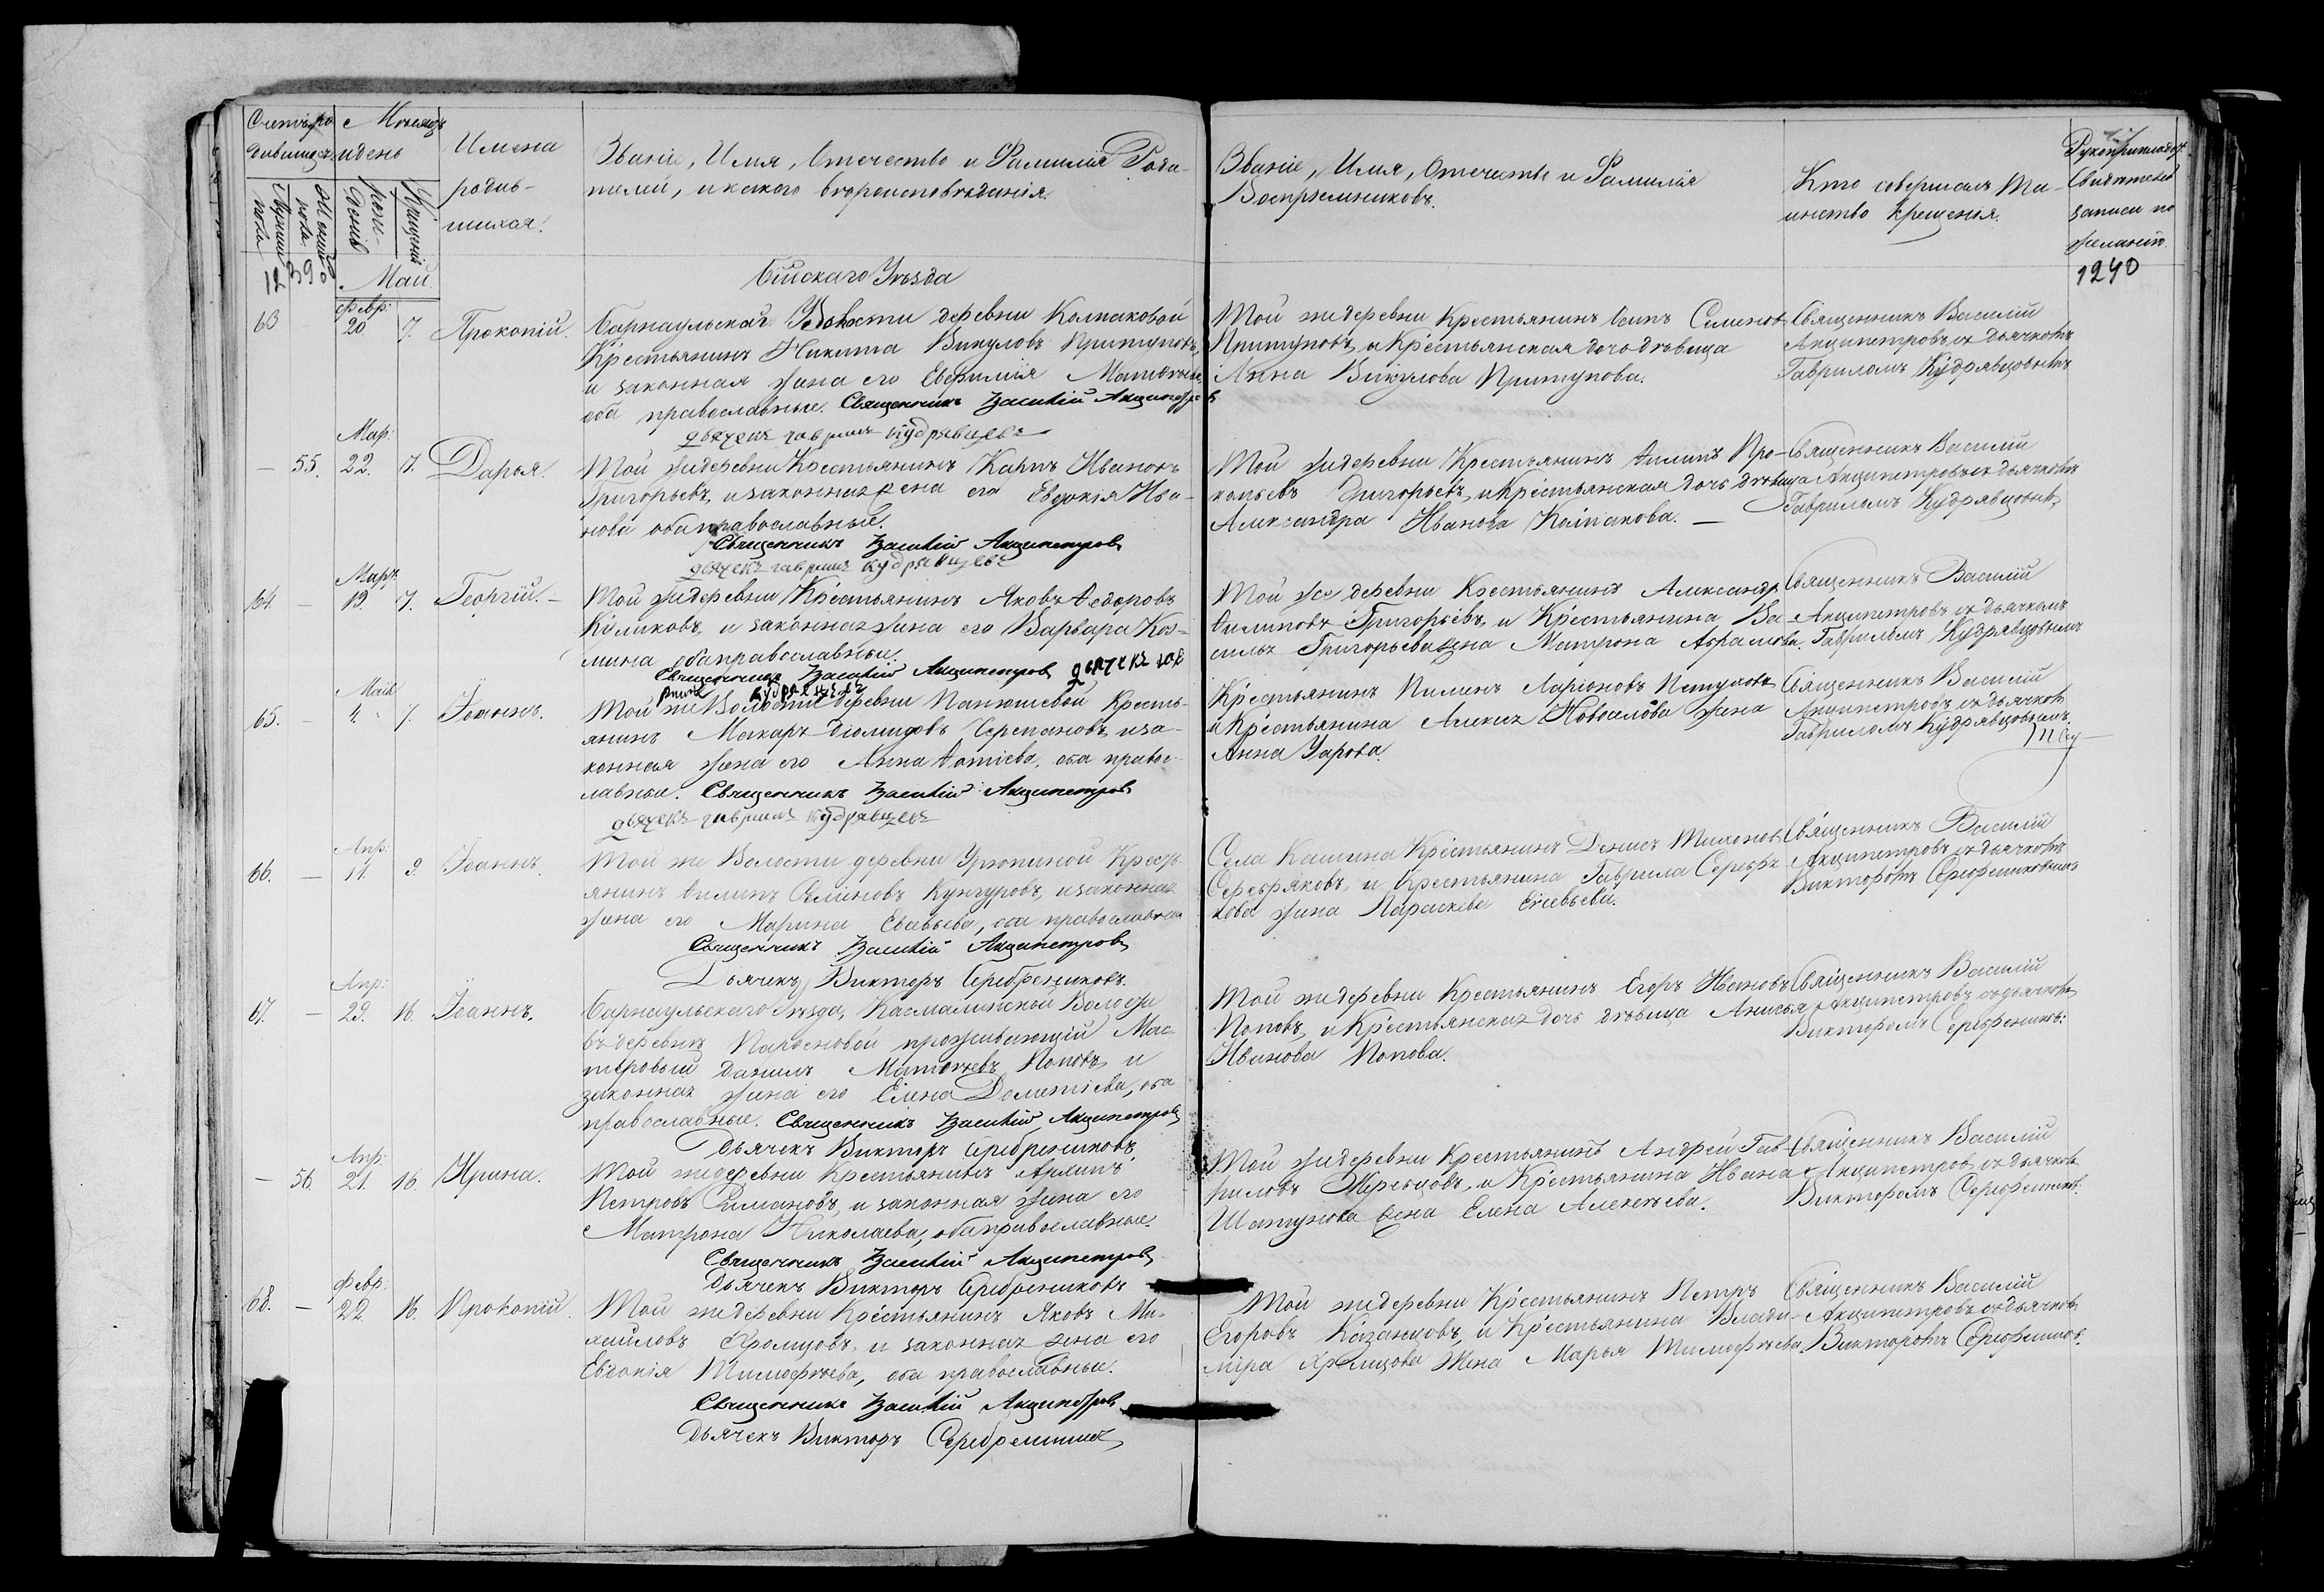 Счетъ ро
дившихся
Мѣсяцъ
и день
Имена
родив-
шихся.
Мужеска
пола
Женска
пола
рож-
денія
Крещенія
Званіе, Имя, Отечество и Фамилія Роди-
телей, и какого вѣроисповѣданія.
Званіе, Имя, Отечество и Фамилія
Воспріемниковъ.
Кто совершалъ Та-
инство крещенія.
Рукоприкладст.
Свидѣтелей
записи по
желанію.
1240
Май
Бійскаго Уѣзда
63 — Февр: 20 7. Прокопій.
Барнаульской Волости деревни Колпаковой
Крестьянинъ Никита Викуловъ Притуповъ,
и законная жена его Евфимія
оба православные. Священникъ Василій Акципетровъ
дьячекъ гавриилъ кудрявцевъ
Той же деревни Крестьянинъ Семенов
Притуповъ, и Крестьянская дочь дѣвица
Анна Викулова Притупова.
Священникъ Василій
Акципетровъ съ дьячкомъ
Гавриломъ Кудрявцовымъ
— 55. Мар: 22. 7. Дарья.
Той же деревни Крестьянинъ Карпъ Ивановъ
Григорьевъ, и законная жена его Евдокія Ива-
нова оба православные.
Священникъ Василій Акципетровъ
дьячекъ гавриилъ кудрявцевъ
Той же деревни Крестьянинъ Филипъ Про-
копьевъ Григорьевъ, и Крестьянская дочь дѣвица
Александра Иванова Колпакова. —
Священникъ Василій
Акципетровъ съ дьячкомъ
Гавриломъ Кудрявцовымъ
64. — Март. 13. 7. Георгій. —
Той же деревни Крестьянинъ Яковъ Федоровъ
Куликовъ, и законная жена его Варвара Коз-
мина оба православные.
Священникъ Василій Акципетровъ дьячекъ гав
риилъ кудрявцевъ
Той же деревни Крестьянинъ Александр
Филиповъ Григорьевъ, и Крестьянина Ва-
силья Григорьева жена Матрона Абрамова.
Священникъ Василій
Акципетровъ съ дьячкомъ
Гавриломъ Кудрявцовымъ
65. — Маія 4. 7. Іоаннъ.
Той же Волости деревни Панюшевой Кресть-
янинъ Макаръ Діомидовъ Черепановъ, и за-
конная жена его Анна Фотіева, оба правос-
лавные. Священникъ Василій Акципетровъ
дьячекъ гавриилъ кудрявцевъ
Крестьянинъ Пименъ Ларіоновъ Петуховъ
и Крестьянина Алексея Новоселова жена
Анна Уарова.
Священникъ Василій
Акципетровъ съ дьячком
Гавриломъ Кудрявцовымъ.
66. — Апр: 11. 9. Іоаннъ.
Той же Волости деревни Урюпиной Кресть
янинъ Филипъ Семеновъ Кунгуровъ, и законная
жена его Марина Савельева, оба православные
Священникъ Василій Акципетровъ
Дьячекъ Викторъ Серебрениковъ.
Села Кашина Крестьянинъ Денисъ Тихонов
Серебряковъ, и Крестьянина Гаврила Серебря
кова жена Параскева Евсевьева.
Священникъ Василій
Акципетровъ съ дьячкомъ
Викторомъ Серебрениковымъ
67. — Апр: 29. 16. Іоаннъ.
Барнаульскаго Уѣзда, Касмалинской Волости
въ деревнѣ Парѳеновой проживающій Мас-
теровый Данилъ Матвеевъ Поповъ, и
законная жена его Елена Дометіева, оба
православные. Священникъ Василій Акципетровъ
Дьячекъ Викторъ Серебрениковъ
Той же деревни Крестьянинъ Егоръ Ивановъ
Поповъ, и Крестьянская дочь дѣвица Анисья
Иванова Попова.
Священникъ Василій
Акципетровъ съ дьячком
Викторомъ Серебреников:
— 56. Апр: 21. 16. Ирина.
Той же деревни Крестьянинъ Архипъ
Петровъ Симановъ, и законная жена его
Матрона Николаева, оба православные.
Священникъ Василій Акципетровъ
Дьячекъ Викторъ Серебрениковъ
Той же деревни Крестьянинъ Андрей Гав-
риловъ Жеребцовъ, и Крестьянина Ивана
Шатунова жена Елена Алексѣева.
Священникъ Василій
Акципетров съ дьячком
Викторомъ Серебреников.
68. — Февр. 22. 16. Прокопій.
Той же деревни Крестьянинъ Яковъ Ми-
хаиловъ Хромцовъ, и законная жена его
Евдокія Тимофѣева, оба православные.
Священникъ Василій Акципетровъ
Дьячекъ Викторъ Серебрениковъ
Той же деревни Крестьянинъ Петръ
Егоровъ Казанцовъ, и Крестьянина Влади-
міра Хромцова жена Марья Тимофѣева.
Священникъ Василій
Акципетровъ съ дьячком
Викторомъ Серебреников.